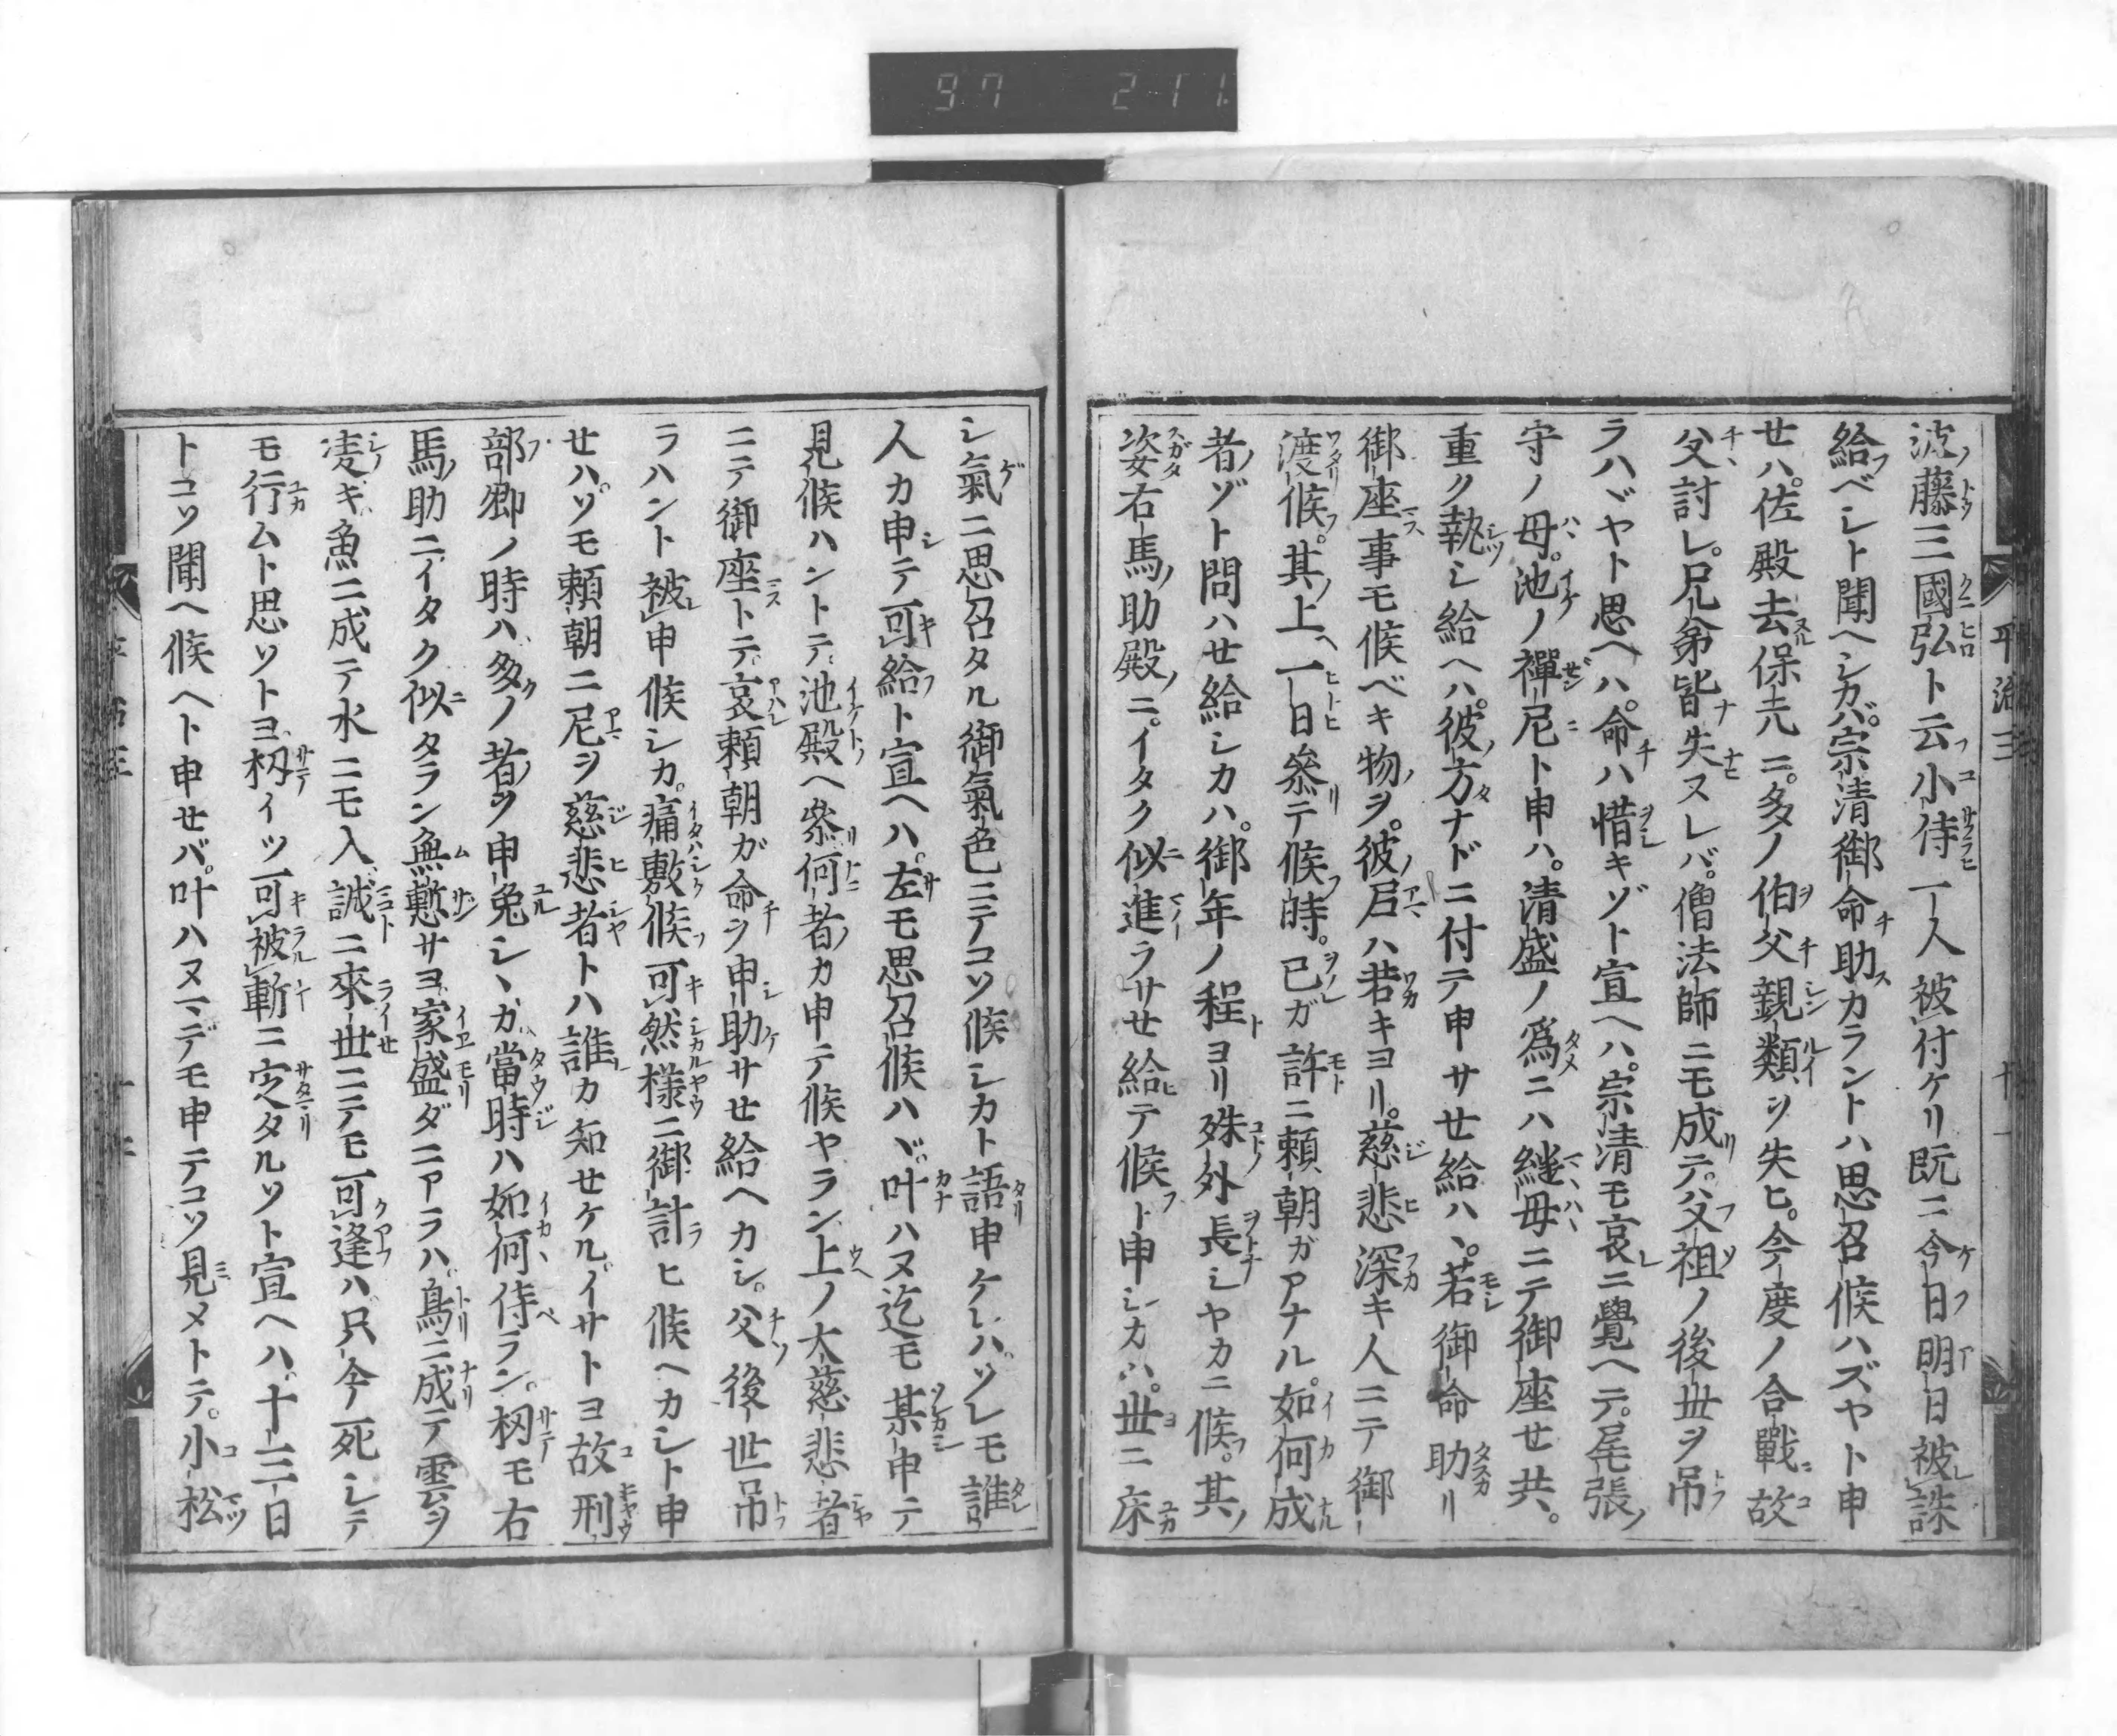 97 211
平治三 十一
波藤三國弘ト云小侍一人被付ケリ既ニ今日明日被誅
給ベシト聞ヘシカバ。宗清御命助カラントハ思召候ハズヤト申
せハ。佐殿去保元ニ。多ノ伯父親類ヲ失ヒ。今度ノ合戰ニ故
父討レ。兄弟皆失ヌレバ。僧法師ニモ成テ。父祖ノ後世ヲ吊
ラハヾヤト思ヘハ。命ハ惜キゾト宣ヘハ。宗清モ哀ニ覺ヘテ。尾張
守ノ母。池ノ禪尼ト申ハ。清盛ノ爲ニハ継母ニテ御座せ共。
重ク執シ給ヘハ。彼方ナドニ付テ申サせ給ハヽ。若御命助リ
御座事モ候ベキ物ヲ。彼尼ハ若キヨリ。慈悲深キ人ニテ御
渡候。其上一日參テ候時。己ガ許ニ頼朝ガアナル。如何成
者ゾト問ハせ給シカハ。御年ノ程ヨリ殊外長シヤカニ候。其
姿右馬助殿ニ。イタク似進ラサせ給テ候ト申シカハ。世ニ床
シ氣ニ思召タル御氣色ニテコソ候シカト語申ケレハ。ソレモ誰
人カ申テ可給ト宣ヘハ。左モ思召候ハヾ。叶ハヌ迄モ某申テ
見候ハントテ。池殿ヘ參。何者カ申テ候ヤラン。上ノ大慈悲者
ニテ御座トテ。哀頼朝ガ命ヲ申助サせ給ヘカシ。父後世吊
ラハント被申候シカ。痛敷候。可然様ニ御計ヒ候ヘカシト申
せハ。ソモ頼朝ニ尼ヲ慈悲者トハ誰カ知せケル。イサトヨ故刑
部卿ノ時ハ。多ノ者ヲ申免シヽガ。當時ハ如何侍ラン。扨モ右
馬助ニイタク似タラン無慙サヨ。家盛ダニアラハ。鳥ニ成テ雲ヲ
凌ギ。魚ニ成テ水ニモ入。誠ニ來世ニテモ可逢ハ。只今死シテ
モ行ムト思ソトヨ。扨イツ可被斬ニ定タルソト宣ヘハ。十三日
トコソ聞ヘ候ヘト申せバ。叶ハヌマデモ申テコソ見メトテ。小松